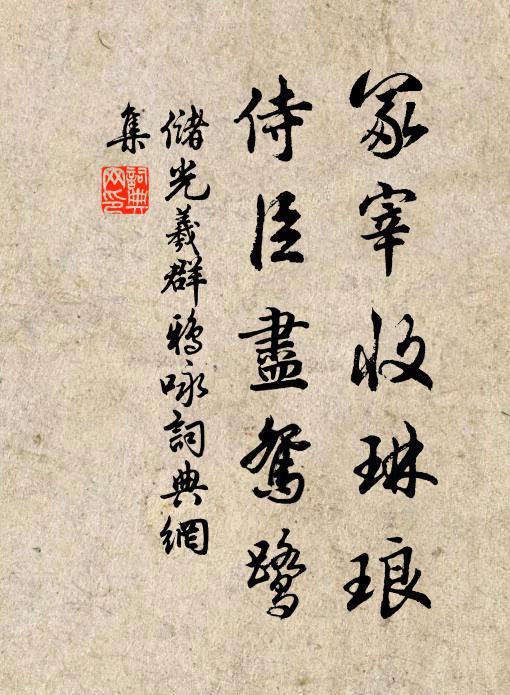 冢宰收琳琅
侍臣盡鴛鷺
儲光羲群鴉咏詞典網
集
詞典網印